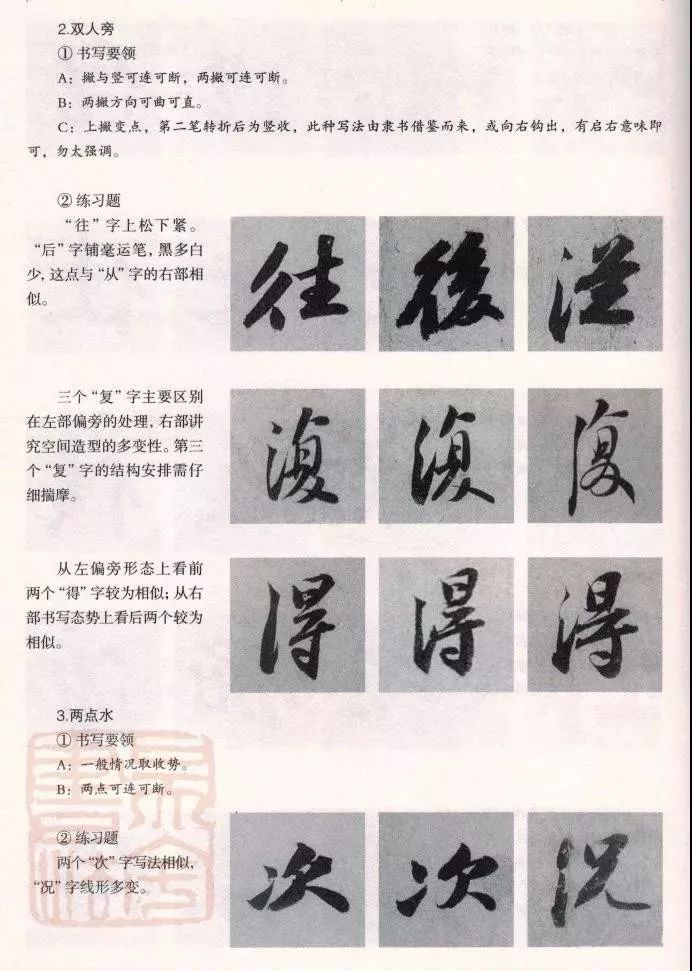 2.双人旁
①书写要领
A：撇与竖可连可断，两撇可连可断。
B：两撇方向可曲可直。
C：上撇变点，第二笔转折后为竖收，此种写法由隶书借鉴而来，或向右钩出，有启右意味即
可，勿太强调。
②练习题
“往”字上松下紧。
“后”字铺毫运笔，黑多白
少，这点与“从”字的右部相
似。
往 後 從
三个“复”字主要区别
在左部偏旁的处理，右部讲
究空间造型的多变性。第三
个“复”字的结构安排需仔
细揣摩。
復 復 復
从左偏旁形态上看前
两个“得”字较为相似；从右
部书写态势上看后两个较为
相似。
得 得 得
3.两点水
①书写要领
A：一般情况取收势。
B：两点可连可断。
②练习题
两个“次”字写法相似，
“况”字线形多变。
次 次 况